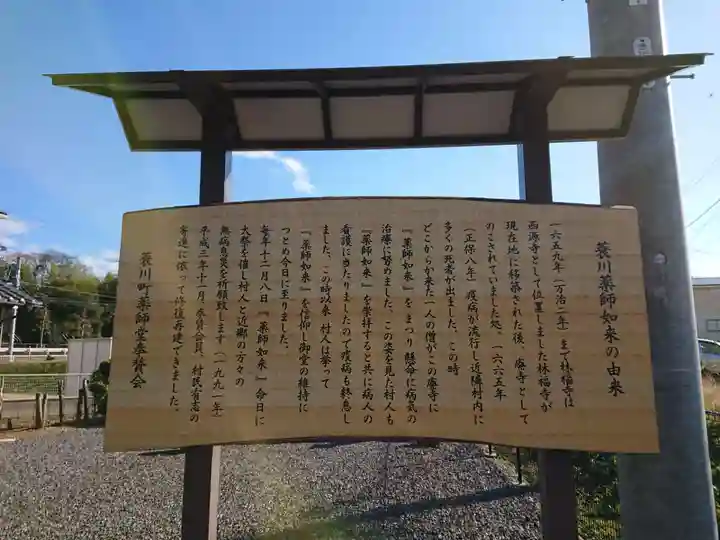 蓑川薬師如来の由来
一六五九年(万治二年)まで林福寺は
西源寺として位置しました林福寺が
現在地に移築された後、廃寺として
のこされていました処、一六六五年
(正保八年)疫病が流行し近隣村内に
多くの死者が出ました、この時
どこからか来た一人の僧がこの廃寺に
『薬師如来』をまつり懸命に病気の
治療に努めました、この姿を見た村人も
『薬師如来』を崇拝すると共に病人の
看護に当たりましたので疫病も終息し
ました、この時以来 村人は挙って
『薬師如来』を信仰し御堂の維持に
つとめ今日に至りました。
毎年十二月八日『薬師如来』命日に
大祭を催し村人と近郷の方々の
無病息災を祈願致します(一九九一年)
平成三年十一月 奉賛会員、村民有志の
寄進に依って修復再建できました。
蓑川町薬師堂奉賛会